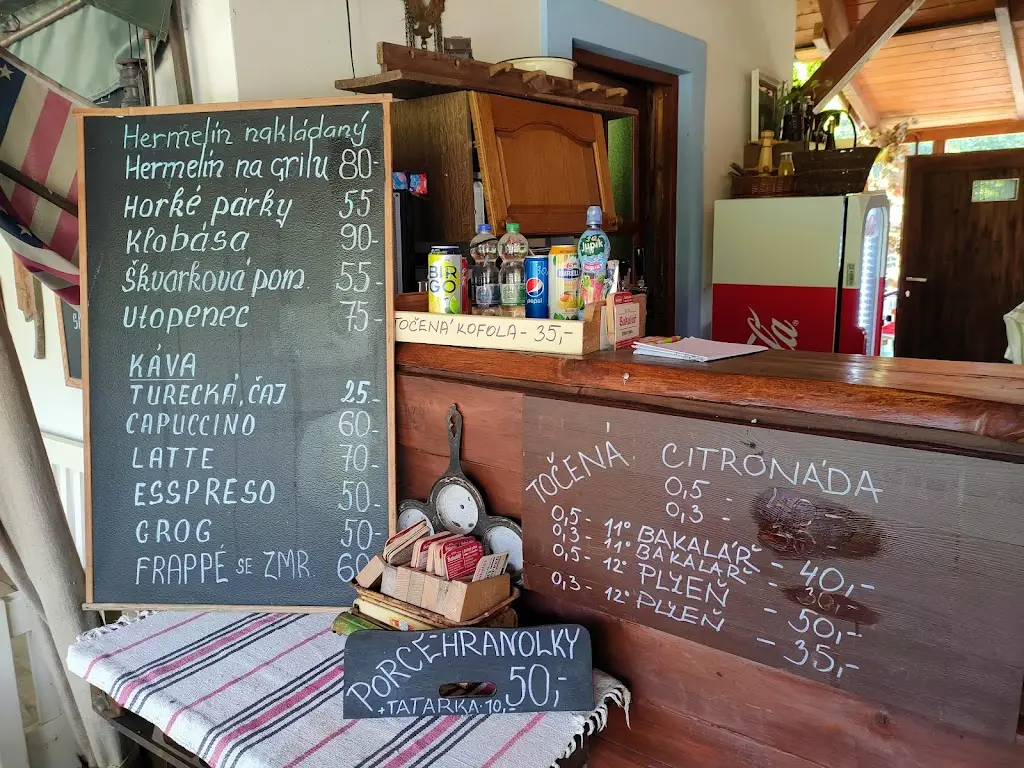 Hermelín nakládaný
Hermelín na grilu 80-
Horké párky 55
Klobása 90-
Škvarková pom. 55-
Utopenec 75-
KÁVA
TURECKÁ, ČAJ 25.-
CAPUCCINO 60-
LATTE 70-
ESSPRESO 50-
GROG 50-
FRAPPÉ SE ZMR. 60
BIRGO
pepsi
BIRELL
Jupík
TOČENÁ KOFOLA - 35,-
Bakalář
TOČENÁ CITRONÁDA
0,5 -
0,3 -
0,5 - 11° BAKALÁŘ - 40,-
0,3 - 11° BAKALÁŘ - 30,-
0,5 - 12° PLZEŇ - 50,-
0,3 - 12° PLZEŇ - 35,-
PORCE HRANOLKY
50,-
+ TATARKA 10,-